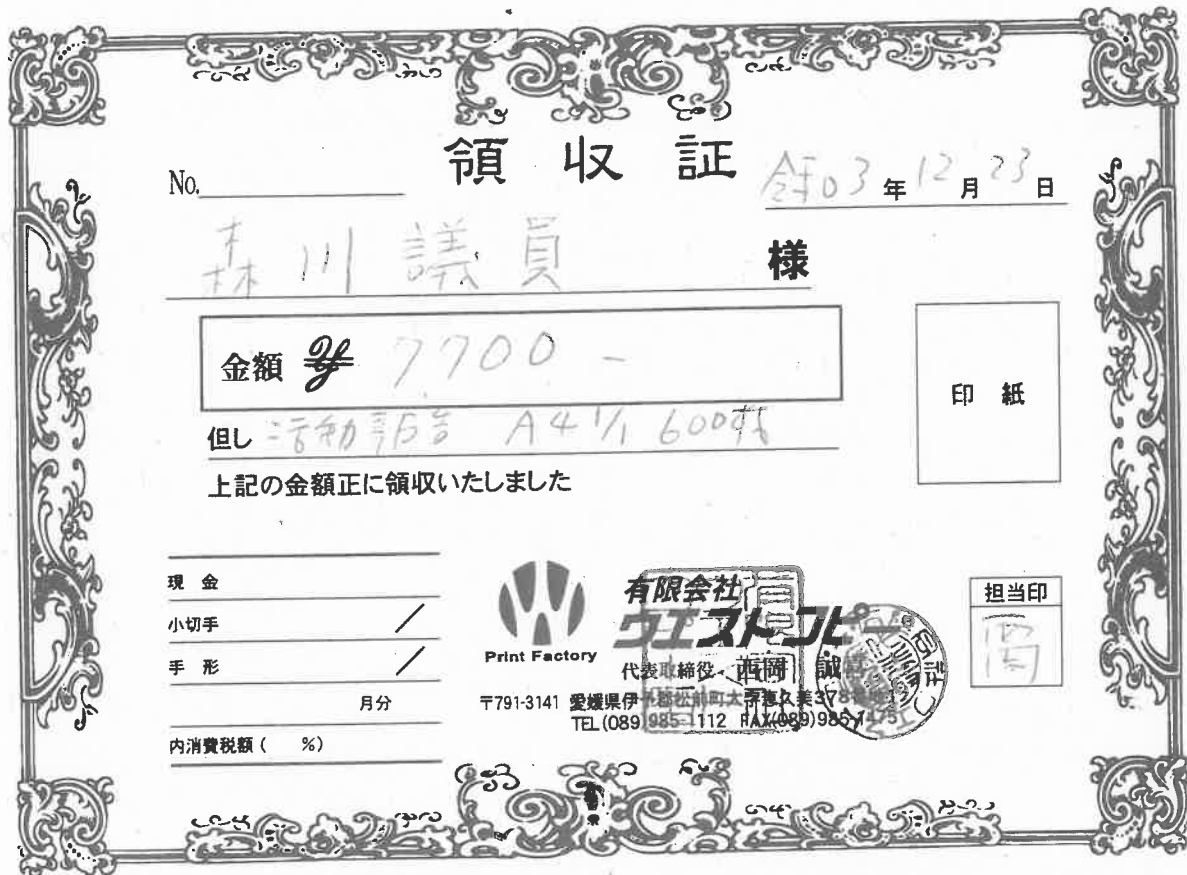 領収証
No.
令和03年12月23日
森川議員 様
金額 ¥ 7700 -
但し 活動報告 A4 1/1 600枚
上記の金額正に領収いたしました
印紙
現金
小切手 /
手形 /
月分
内消費税額( %)
Print Factory
有限会社
ウエストンビ
代表取締役 西岡 誠
〒791-3141 愛媛県伊予郡松前町大字恵久美378
TEL(089)985-1112 FAX(089)985-1475
担当印